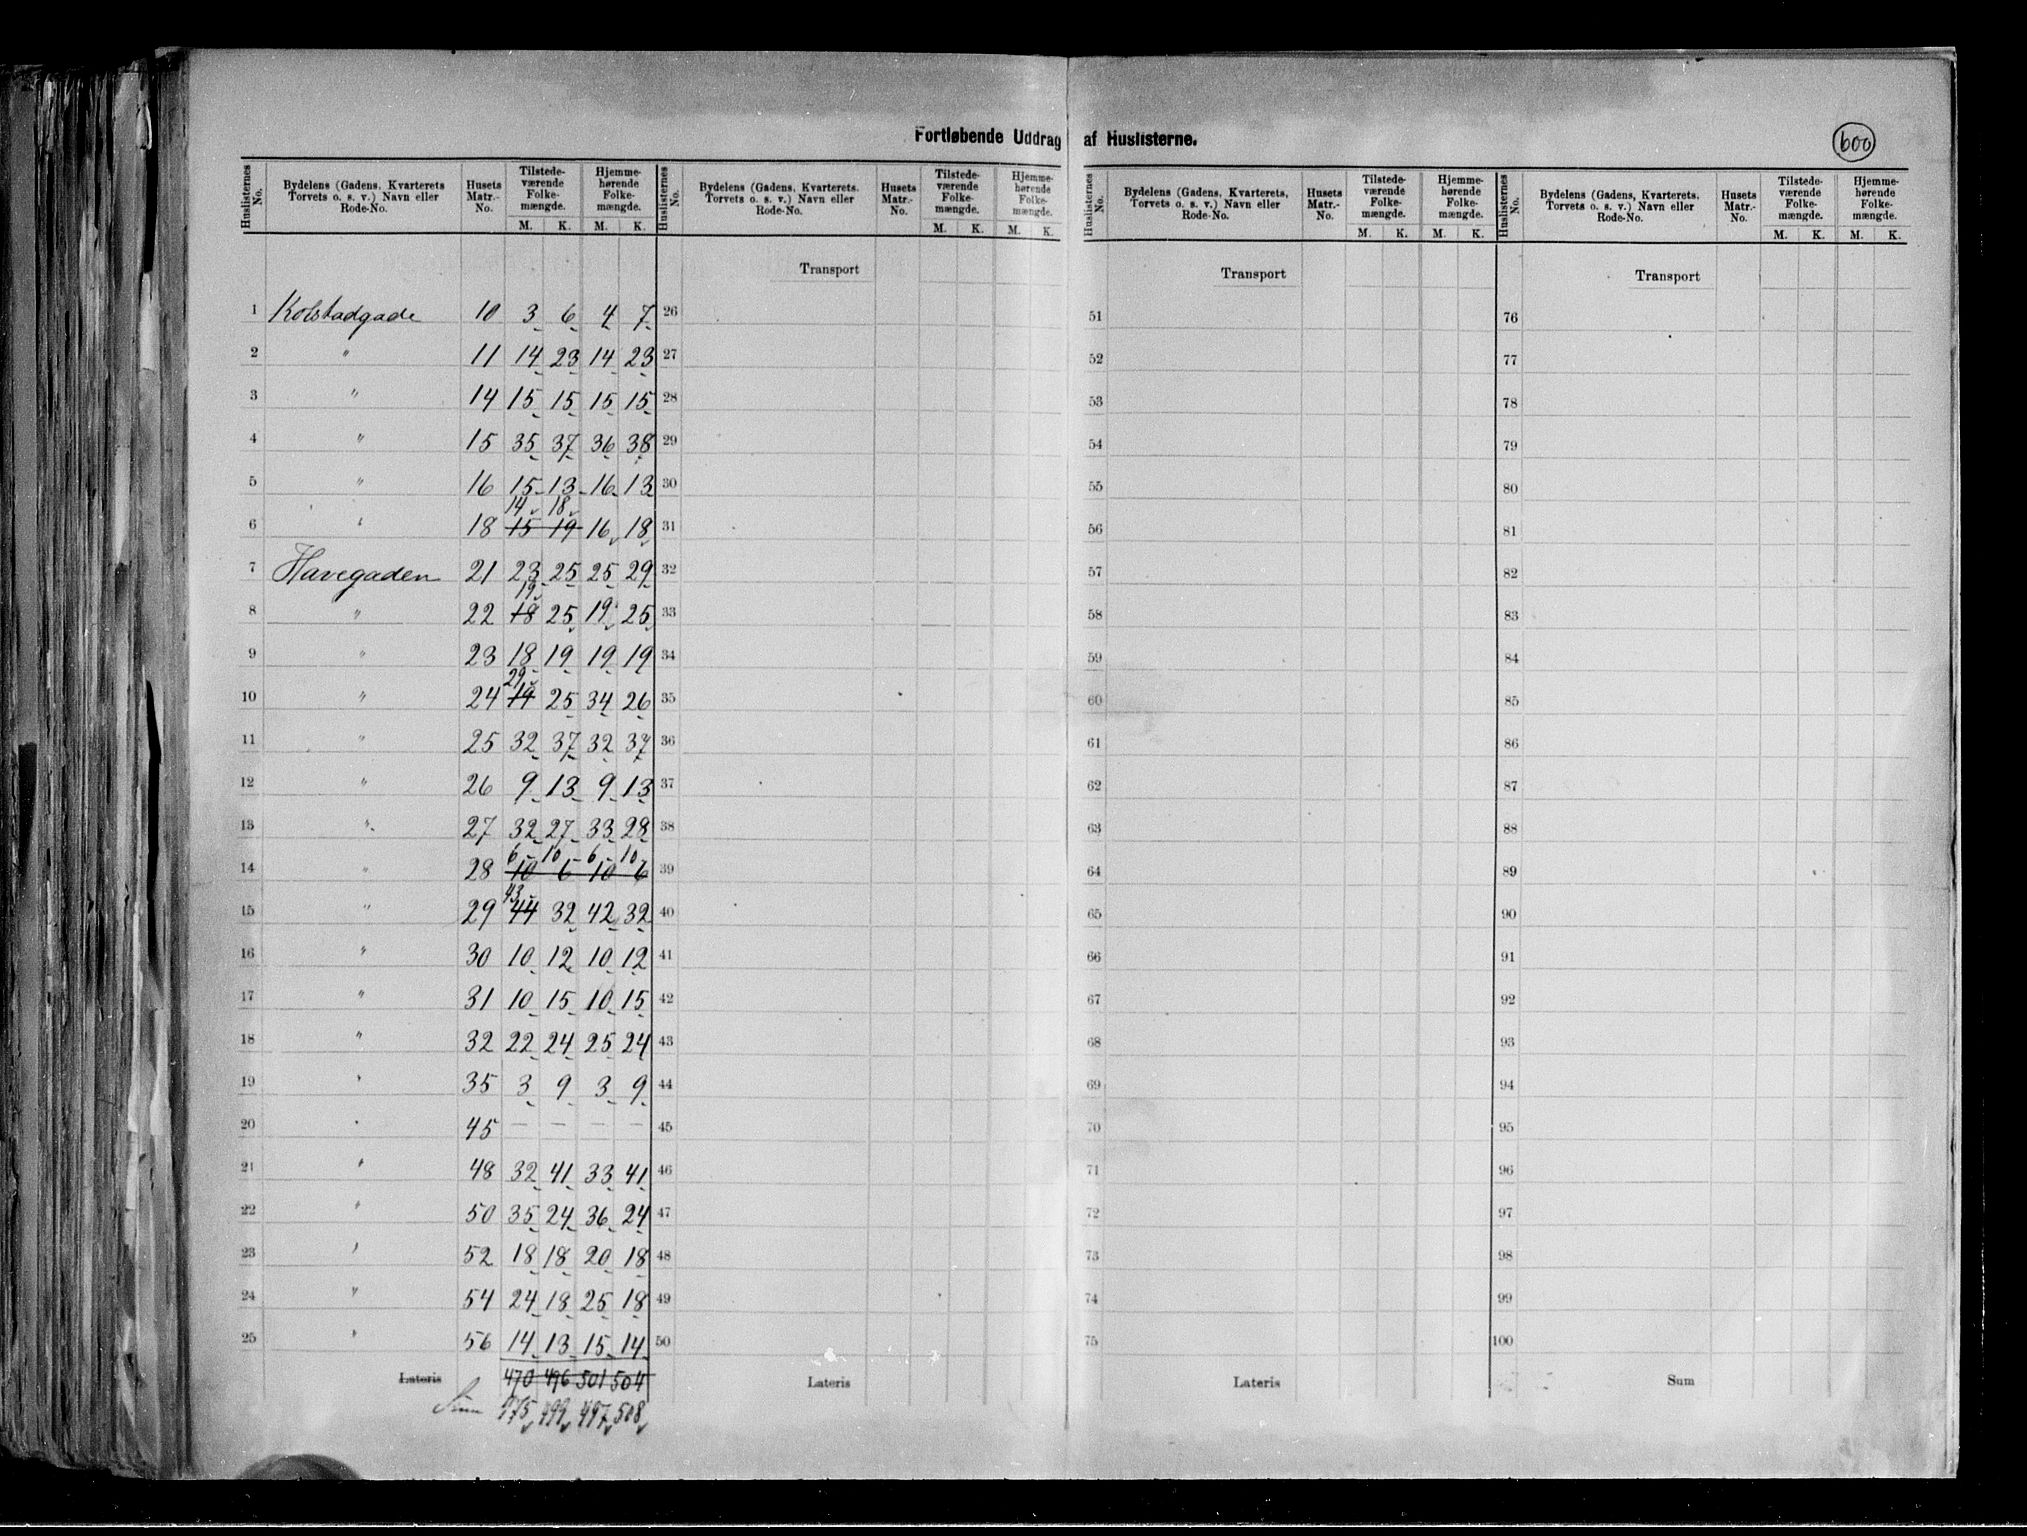 Fortløbende Uddrag af Huslisterne.
600
Huslisternes No. | Bydelens (Gadens, Kvarterets Torvets o. s. v.) Navn eller Rode-No. | Husets Matr.-No. | Tilstede-værende Folke-mængde. M. K. | Hjemme-hørende Folke-mængde. M. K.
Huslisternes No. | Bydelens (Gadens, Kvarterets. Torvets o. s. v.) Navn eller Rode-No. | Husets Matr.-No. | Tilstede-værende Folke-mængde. M. K. | Hjemme-hørende Folke-mængde. M. K.
Huslisternes No. | Bydelens (Gadens, Kvarterets, Torvets o. s. v.) Navn eller Rode-No. | Husets Matr.-No. | Tilstede-værende Folke-mængde. M. K. | Hjemme-hørende Folke-mængde. M. K.
Huslisternes No. | Bydelens (Gadens, Kvarterets, Torvets o. s. v.) Navn eller Rode-No. | Husets Matr.-No. | Tilstede-værende Folke-mængde. M. K. | Hjemme-hørende Folke-mængde. M. K.
Transport Transport Transport
1 Kolstadgade 10 3 6 4 7 26 51 76
2 " 11 14 23 14 23 27 52 77
3 " 14 15 15 15 15 28 53 78
4 " 15 35 37 36 38 29 54 79
5 " 16 15 13 16 13 30 55 80
14 18
6 " 18 15 19 16 18 31 56 81
7 Havegaden 21 23 25 25 29 32 57 82
19
8 " 22 18 25 19 25 33 58 83
9 " 23 18 19 19 19 34 59 84
29
10 " 24 19 25 34 26 35 60 85
11 " 25 32 37 32 37 36 61 86
12 " 26 9 13 9 13 37 62 87
13 " 27 32 27 33 28 38 63 88
6 10 6 10
14 " 28 10 6 10 6 39 64 89
43
15 " 29 44 32 42 32 40 65 90
16 " 30 10 12 10 12 41 66 91
17 " 31 10 15 10 15 42 67 92
18 " 32 22 24 25 24 43 68 93
19 " 35 3 9 3 9 44 69 94
20 " 45 — — — — 45 70 95
21 " 48 32 41 33 41 46 71 96
22 " 50 35 24 36 24 47 72 97
23 " 52 18 18 20 18 48 73 98
24 " 54 24 18 25 18 49 74 99
25 " 56 14 13 15 14 50 75 100
Lateris 470 496 501 504 Lateris Lateris Sum
Sum 499 497 508